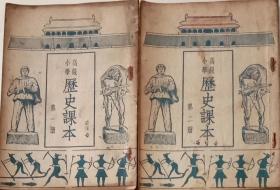 高級
小學
歷史課本
第一冊
高級
小學
歷史課本
第二冊